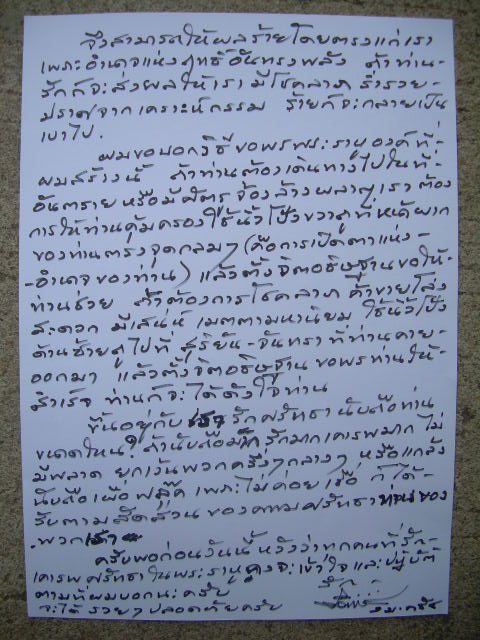 จึงสามารถให้ผลร้ายโดยตรงแก่เรา
เพราะอำนาจแห่งฤทธิ์อันทรงพลัง ถ้าท่าน-
รักก็จะส่งผลให้เรา มีโชคลาภ ร่ำรวย-
ปราศจากเคราะห์กรรม ร้ายก็จะกลายเป็น
เบาไป.
ผมขอบอกวิธีขอพรพระราหูองค์ที่-
ผมสร้างนี้ ถ้าท่านต้องเดินทางไปในที่-
อันตราย หรือมีศัตรูจ้องล้างผลาญเรา ต้อง
การให้ท่านคุ้มครองใช้นิ้วโป้งขวาถูที่หน้าผาก
ของท่านตรงจุดกลมๆ (คือการเปิดตาแห่ง-
-อำนาจของท่าน) แล้วตั้งจิตอธิษฐานขอให้-
ท่านช่วย ถ้าต้องการโชคลาภ ค้าขายโล่ง
สะดวก มีเสน่ห์ เมตตามหานิยม ใช้นิ้วโป้ง
ด้านซ้ายถูไปที่ สุริยัน-จันทรา ที่ท่านคาย-
ออกมา แล้วตั้งจิตอธิษฐาน ขอพรท่านให้-
สำเร็จ ท่านก็จะได้ดังใจท่าน
ขึ้นอยู่กับเรารักศรัทธา นับถือท่าน
ขนาดไหน? ถ้านับถือมาก รักมากเคารพมาก ไม่
มีพลาด ยกเว้นพวกครึ่งๆกลางๆ หรือแกล้ง
นับถือเผื่อฟลุ๊ค เพราะไม่ค่อยเชื่อ ก็ได้-
รับตามสัดส่วน ของความศรัทธา ของ
พวกเรา
ครับพอก่อนวันนี้ หวังว่าทุกคนที่รัก-
เคารพ ศรัทธาในพระราหูคงจะเข้าใจ และปฏิบัติ
ตามที่ผมบอกนะครับ
จะได้ รวยๆปลอดภัยครับ